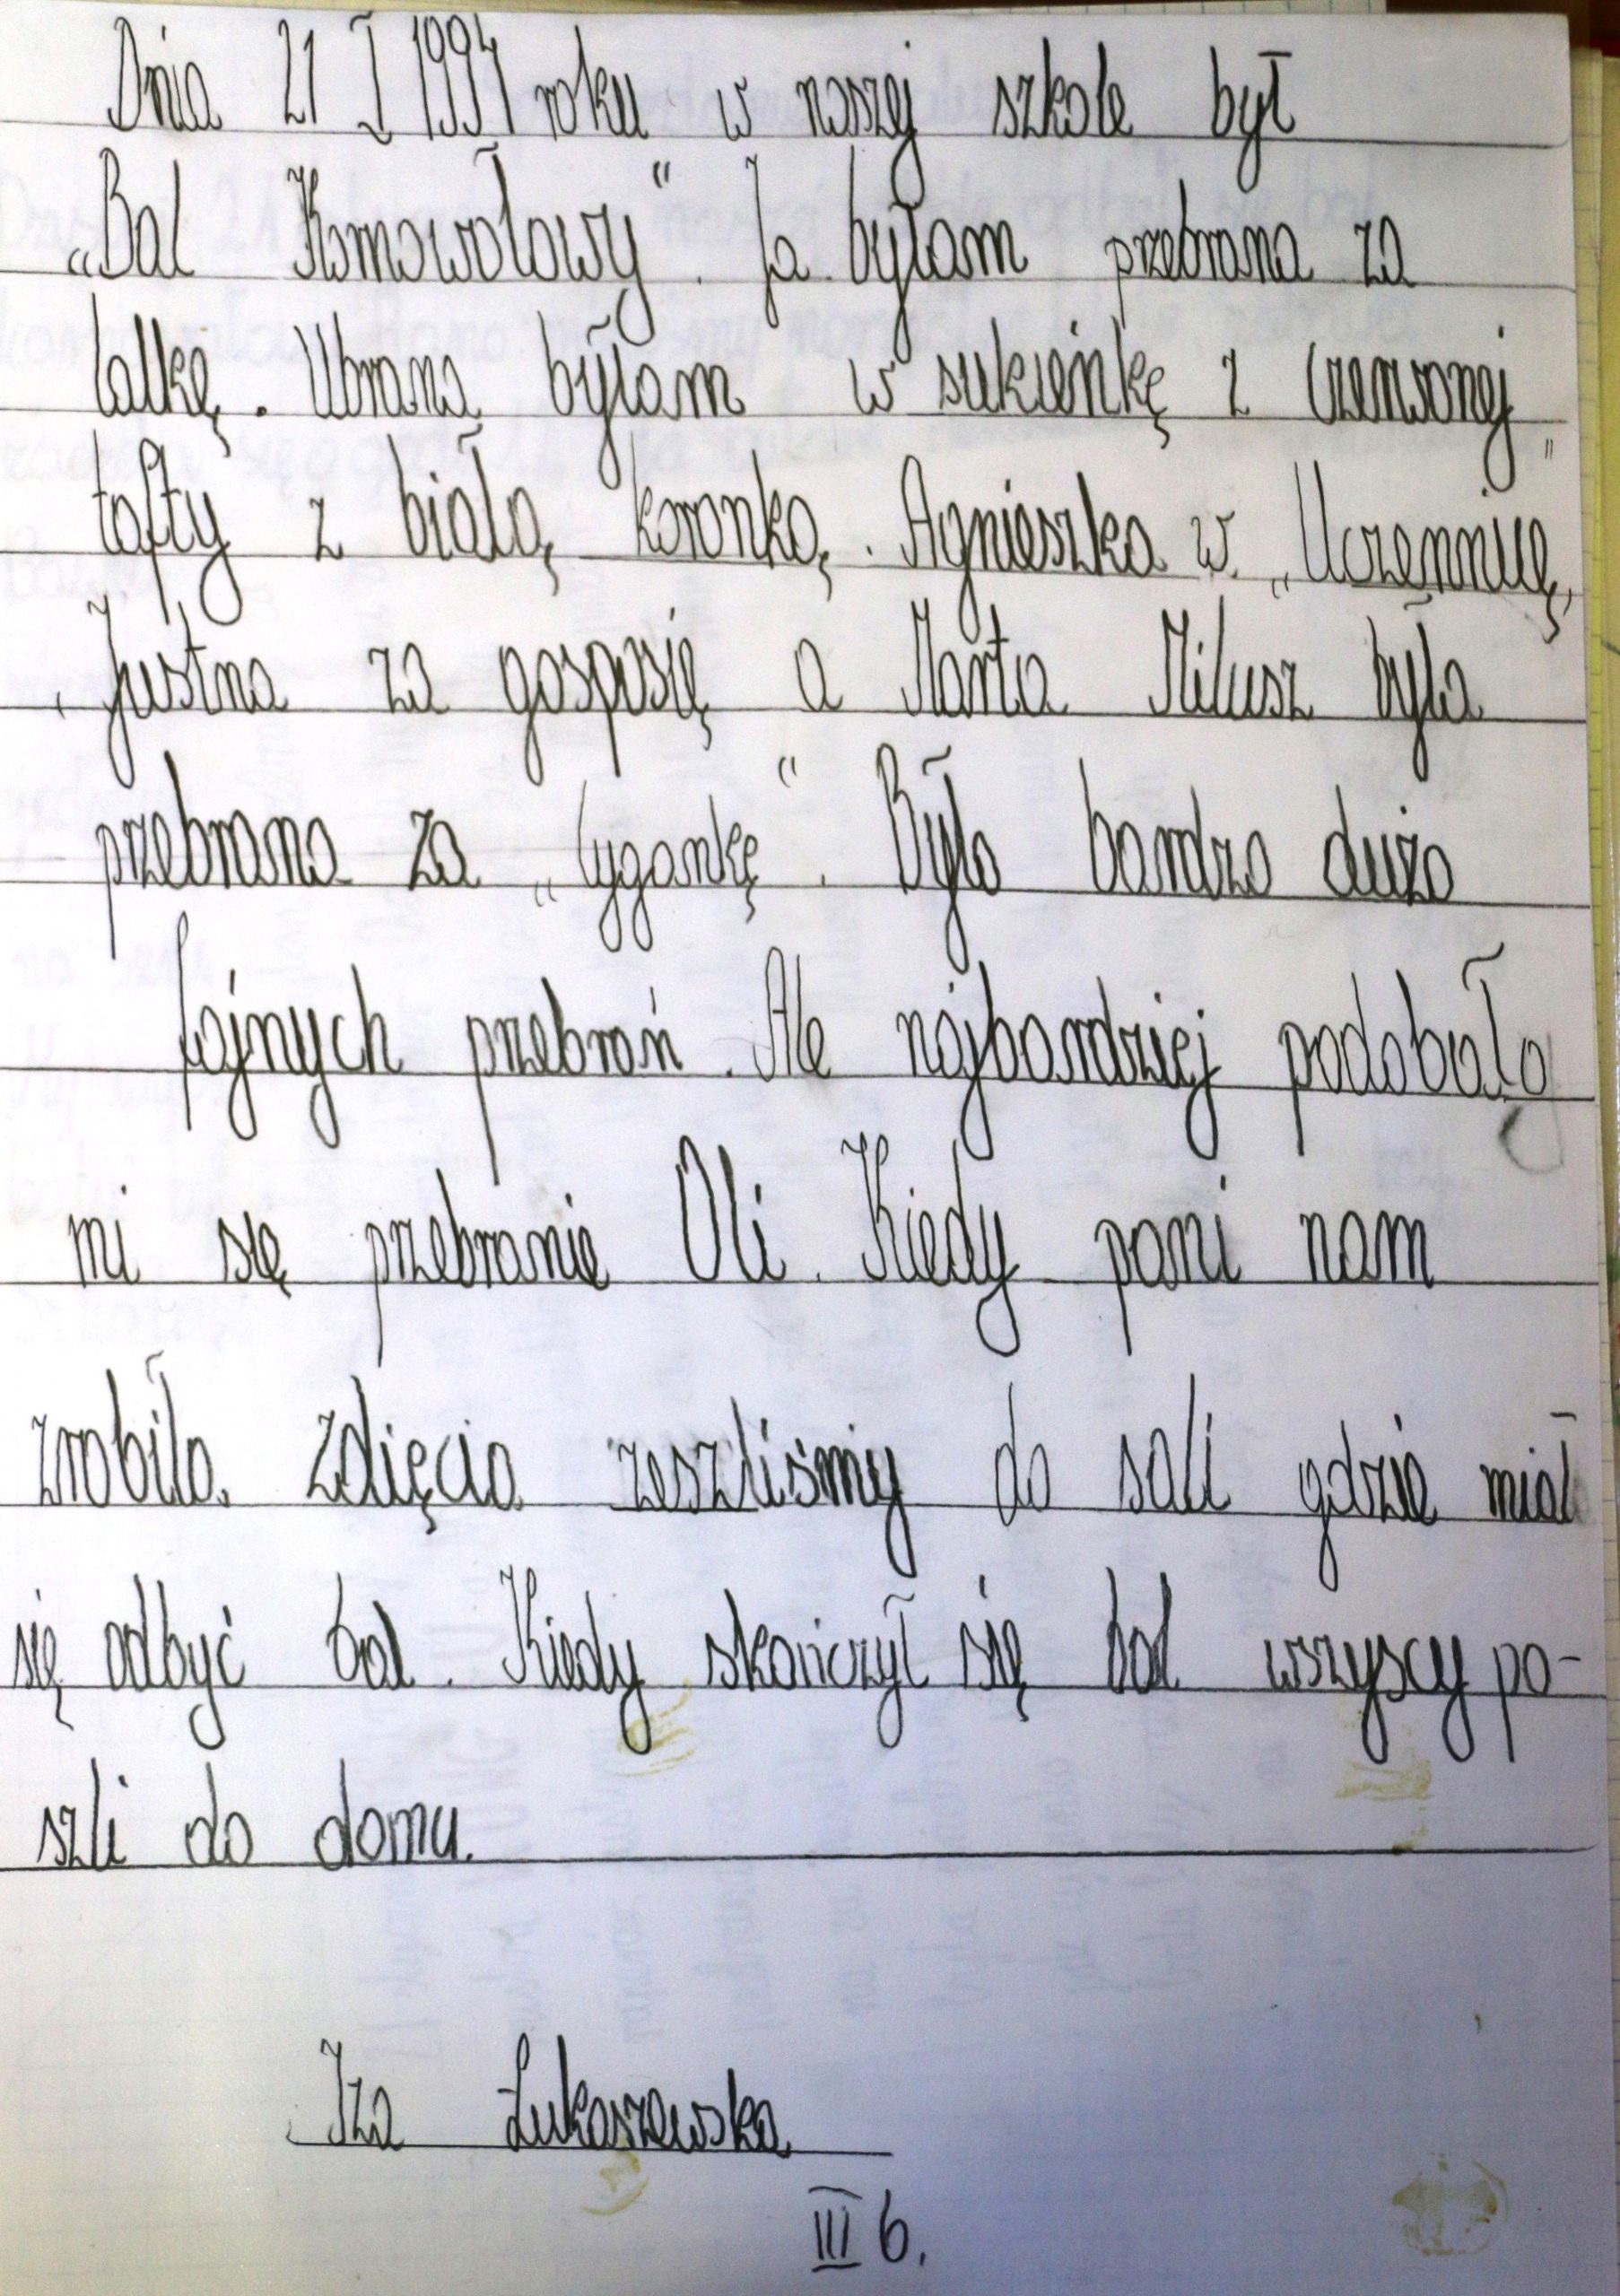 Dnia 21 I 1994 roku w naszej szkole był
„Bal Karnawałowy”. Ja byłam przebrana za
lalkę. Ubrana byłam w sukienkę z czerwonej
tafty z białą koronką. Agnieszka w „Uczennicę”,
Justna za gosposię a Marta Milusz była
przebrana za „Cygankę”. Było bardzo dużo
fajnych przebrań. Ale najbardziej podobało
mi się przebranie Oli. Kiedy pani nam
zrobiła zdięcia zeszliśmy do sali gdzie miał
się odbyć bal. Kiedy skończył się bal wszyscy po-
szli do domu.
Iza Łukaszewska
III b.